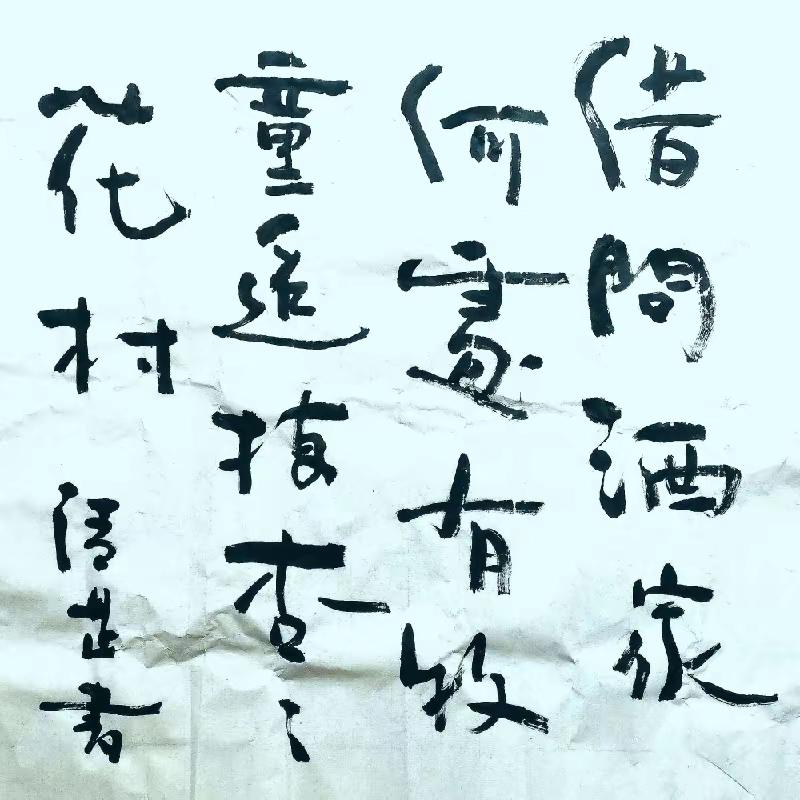 借問酒家
何處有牧
童遥指杏
花村
清芷書